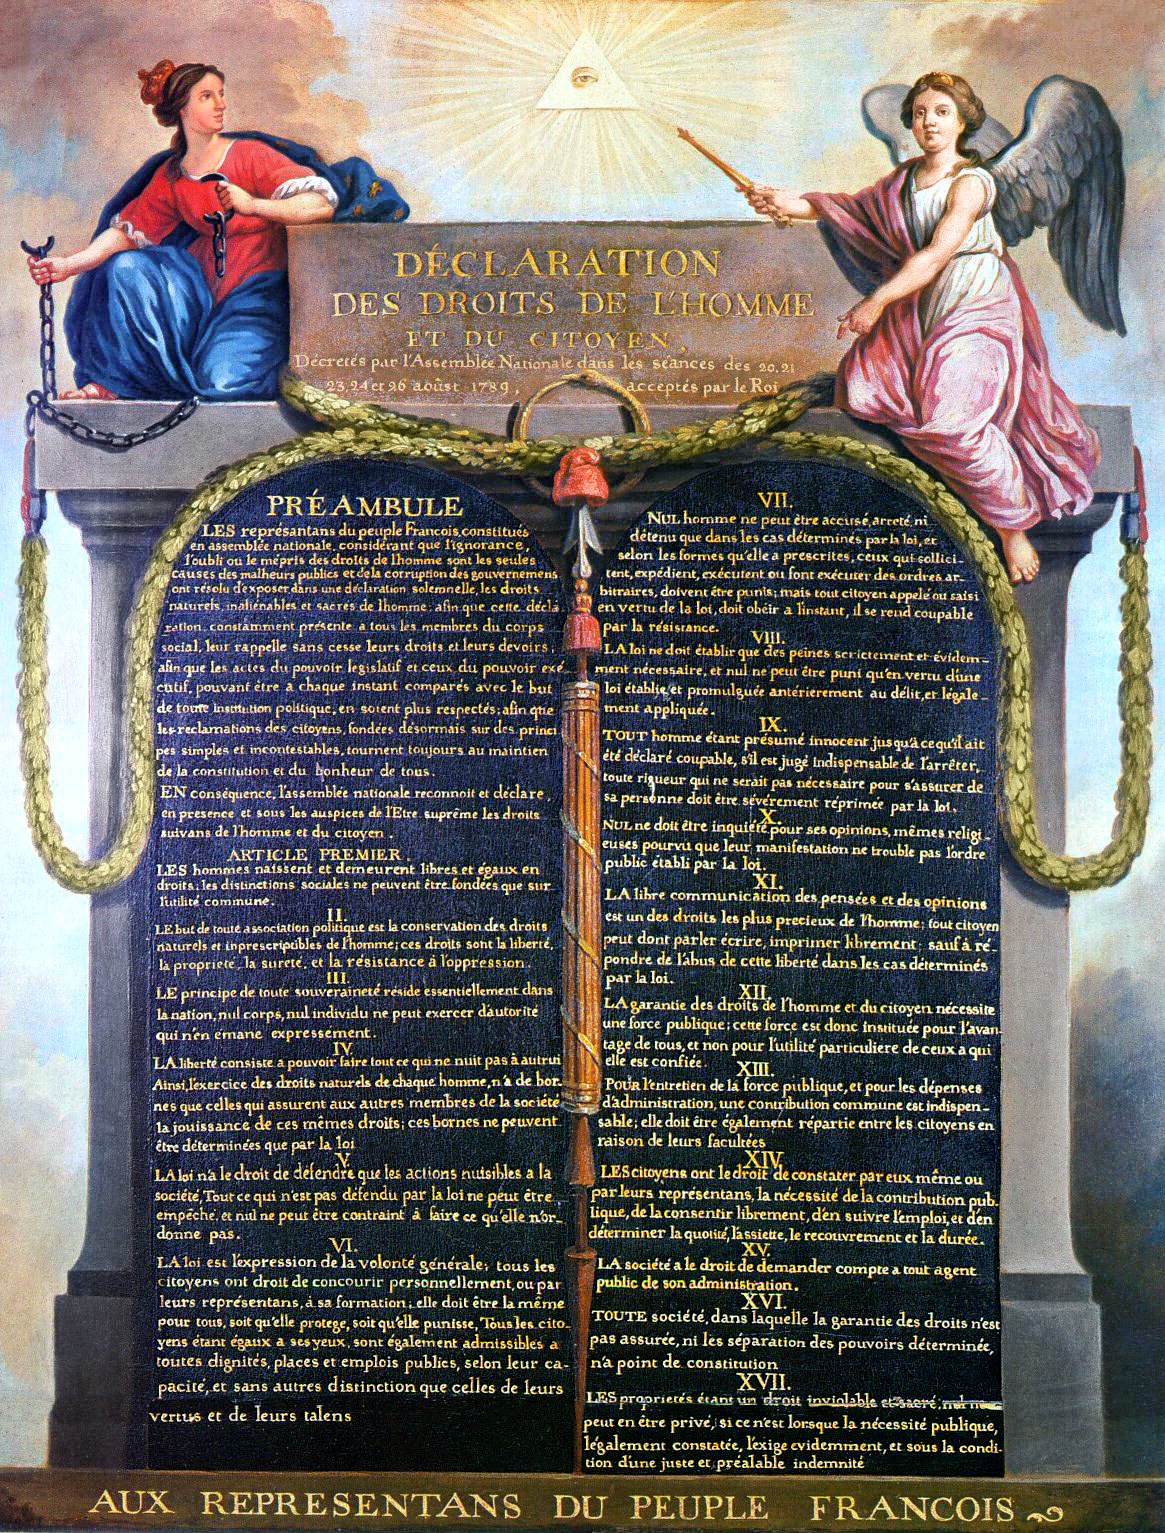 DÉCLARATION
DES DROITS DE L'HOMME
ET DU CITOYEN,
Décretés par l'Assemblée Nationale dans les séances des 20, 21
23, 24 et 26 août 1789, acceptés par le Roi
PRÉAMBULE
LES représantans du peuple Francois, constitués
en assemblée nationale, considérant que l'ignorance,
l'oubli ou le mépris des droits de l'homme sont les seules
causes des malheurs publics et de la corruption des gouvernemens
ont résolu d'exposer dans une déclaration solemnelle, les droits
naturels, inaliénables et sacrés de l'homme; afin que cette décla
ration, constamment présente a tous les membres du corps
social, leur rappelle sans cesse leurs droits et leurs devoirs;
afin que les actes du pouvoir legislatif et ceux du pouvoir exé
cutif, pouvant être a chaque instant comparés avec le but
de toute institution politique, en soient plus respectés; afin que
les reclamations des citoyens, fondées désormais sur des princi
pes simples et incontestables, tournent toujours au maintien
de la constitution et du bonheur de tous.
EN conséquence, l'assemblée nationale reconnoit et déclare,
en presence et sous les auspices de l'Etre suprême les droits
suivans de l'homme et du citoyen.
ARTICLE PREMIER.
LES hommes naissent et demeurent libres et égaux en
droits; les distinctions sociales ne peuvent être fondées que sur
l'utilité commune.
II.
LE but de toute association politique est la conservation des droits
naturels et inprescriptibles de l'homme; ces droits sont la liberté,
la proprieté, la sureté, et la résistance à l'oppression.
III.
LE principe de toute souveraineté réside essentiellement dans
la nation, nul corps, nul individu ne peut exercer d'autorité
qui n'en emane expressément.
IV.
LA liberté consiste a pouvoir faire tout ce qui ne nuit pas à autrui
Ainsi, l'exercice des droits naturels de chaque homme, n'a de bor-
nes que celles qui assurent aux autres membres de la société
la jouissance de ces mêmes droits; ces bornes ne peuvent
être déterminées que par la loi
V.
LA loi n'a le droit de défendre que les actions nuisibles a la
société. Tout ce qui n'est pas défendu par la loi ne peut être
empéché, et nul ne peut être contraint à faire ce qu'elle n'or-
donne pas.
VI.
LA loi est l'expression de la volonté générale; tous les
citoyens ont droit de concourir personnellement, ou par
leurs représentans, à sa formation; elle doit être la même
pour tous, soit qu'elle protege, soit qu'elle punisse, Tous les cito-
yens étant égaux a ses yeux, sont également admissibles a
toutes dignités, places et emplois publics, selon leur ca-
pacité, et sans autres distinction que celles de leurs
vertus et de leurs talens
VII.
NUL homme ne peut être accusé, arreté, ni
détenu que dans les cas déterminés par la loi, et
selon les formes qu'elle a prescrites, ceux qui sollici-
tent, expédient, exécutent ou font exécuter des ordres ar-
bitraires, doivent être punis; mais tout citoyen appelé ou saisi
en vertu de la loi, doit obéir a l'instant, il se rend coupable
par la résistance.
VIII.
LA loi ne doit établir que des peines strictement et évidem-
ment nécessaire, et nul ne peut être puni qu'en vertu d'une
loi établie, et promulguée antérierement au délit, et légale-
ment appliquée.
IX.
TOUT homme étant présumé innocent jusqu'à ce qu'il ait
été déclaré coupable, s'il est jugé indispensable de l'arrêter,
toute rigueur qui ne serait pas nécessaire pour s'assurer de
sa personne doit être sévérement réprimée par la loi.
X.
NUL ne doit être inquiété pour ses opinions, mêmes religi-
euses pourvu que leur manifestation ne trouble pas l'ordre
public établi par la loi.
XI.
LA libre communication des pensées et des opinions
est un des droits les plus precieux de l'homme; tout citoyen
peut dont parler écrire, imprimer librement; sauf à ré-
pondre de l'abus de cette liberté dans les cas déterminés
par la loi.
XII.
LA garantie des droits de l'homme et du citoyen nécessite
une force publique; cette force est donc instituée pour l'avan-
tage de tous, et non pour l'utilité particuliere de ceux a qui
elle est confiée.
XIII.
POUR l'entretien de la force publique, et pour les dépenses
d'administration, une contribution commune est indispen-
sable; elle doit être également répartie entre les citoyens en
raison de leurs facultées
XIV.
LES citoyens ont le droit de constater par eux même ou
par leurs représentans, la nécessité de la contribution pub-
lique, de la consentir librement, d'en suivre l'emploi, et d'en
déterminer la quotité, l'assiette, le recouvrement et la durée.
XV.
LA société a le droit de demander compte a tout agent
public de son administration.
XVI.
TOUTE société, dans laquelle la garantie des droits n'est
pas assurée, ni les séparation des pouvoirs déterminée,
n'a point de constitution
XVII.
LES proprietés étant un droit inviolable et sacré, nul ne
peut en être privé, si ce n'est lorsque la nécessité publique,
légalement constatée, l'exige evidemment, et sous la condi-
tion d'une juste et préalable indemnité
AUX REPRESENTANS DU PEUPLE FRANCOIS